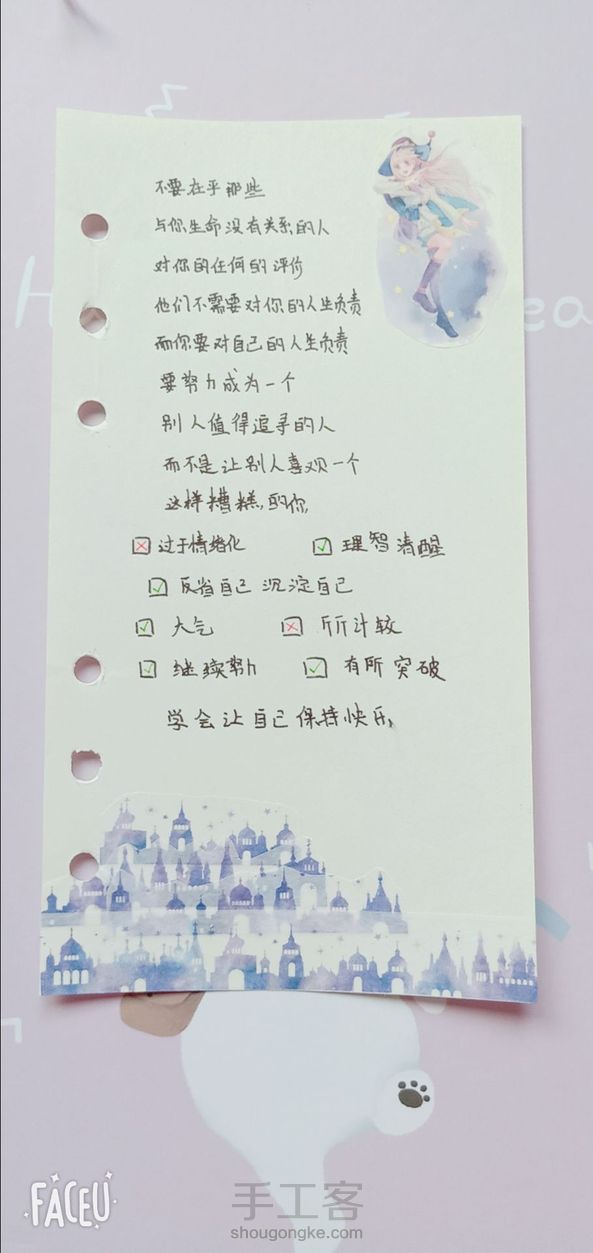 不要在乎那些
与你生命没有关系的人
对你的任何的评价
他们不需要对你的人生负责
而你要对自己的人生负责
要努力成为一个
别人值得追寻的人
而不是让别人喜观一个
这样糟糕的你,
过于情绪化 理智清醒
反省自己 沉淀自己
大气 斤斤计较
继续努力 有所突破
学会让自己保持快乐,
FACEU
手工客
shougongke.com